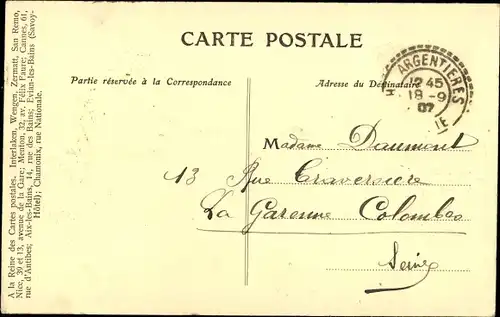 A la Reine des Cartes postales. Interlaken, Wengen, Zermatt, San Remo,
Nice, 39 et 13, avenue de la Gare; Menton, 32, av. Félix Faure; Cannes, 61,
rue d'Antibes; Aix-les-Bains, 14, rue des Bains; Evian-les-Bains (Savoy-
Hôtel); Chamonix, rue Nationale.
CARTE POSTALE
Partie réservée à la Correspondance
Adresse du Destinataire
ARGENTIERES
12 45
18 -9
07
H
IE
Madame Daumont
13 Rue Traversière
La Garenne Colombes
Seine